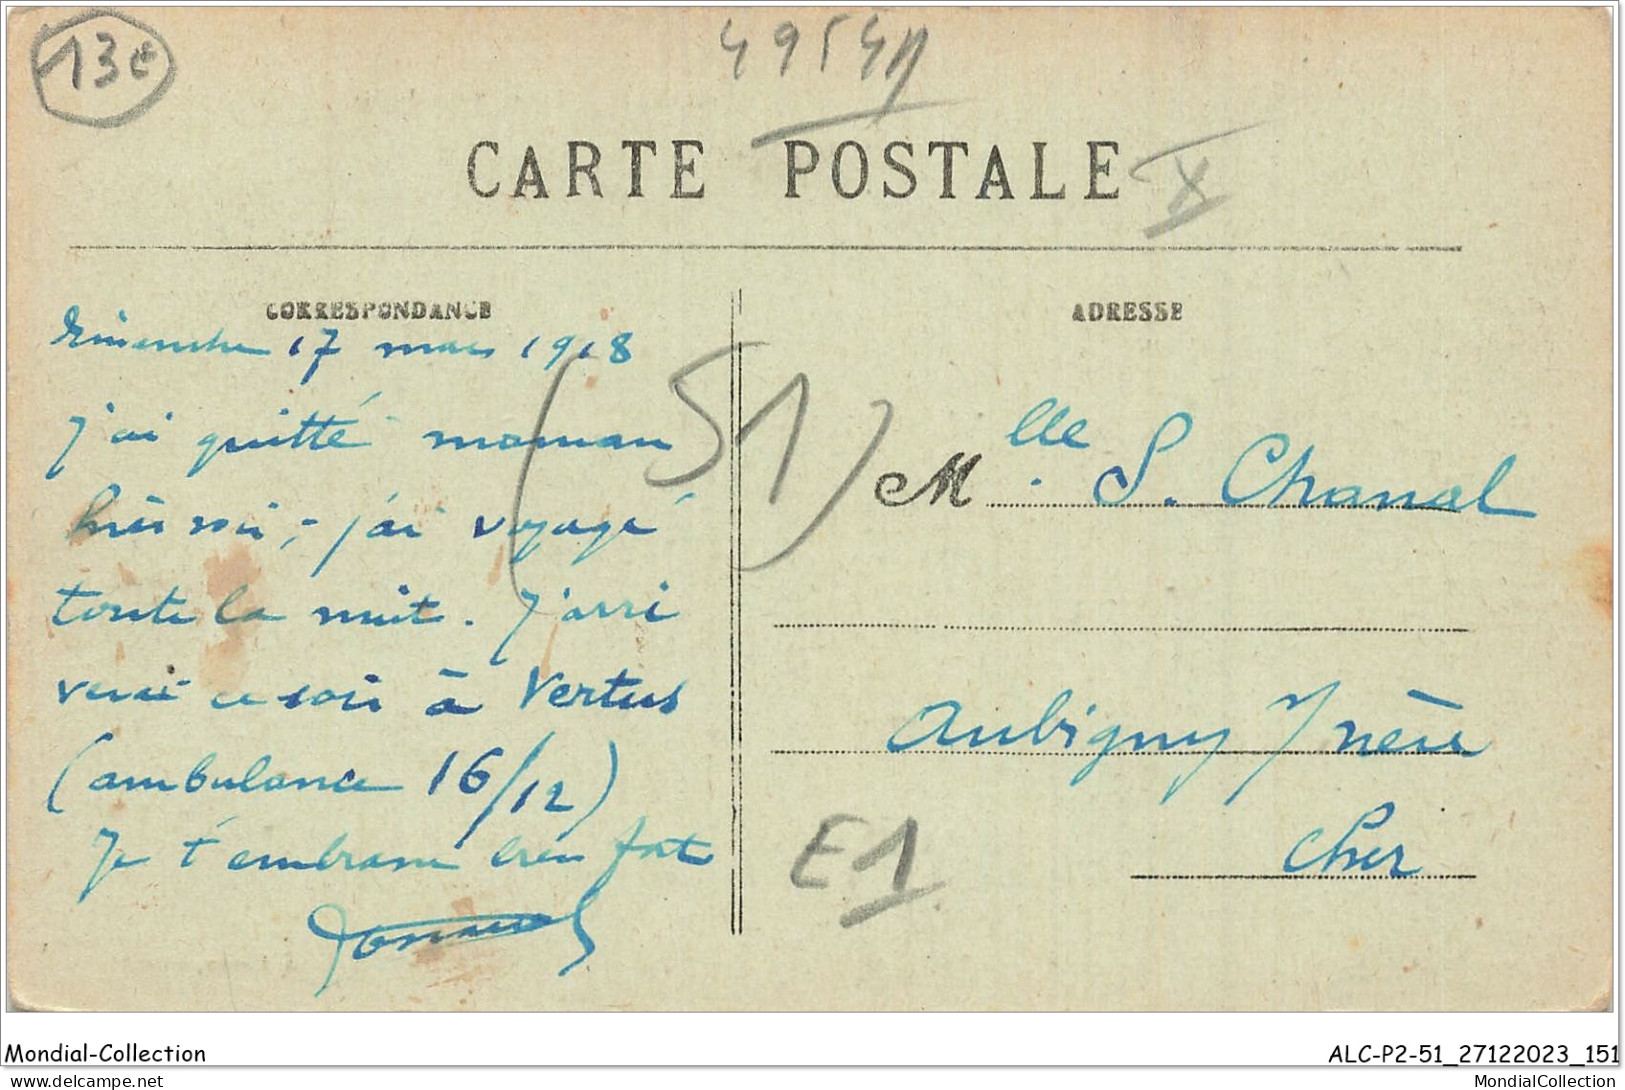 13€
4954
CARTE POSTALE
X
CORRESPONDANCE
ADRESSE
Dimanche 17 mars 1918
(51)
j'ai quitté maman
hier soir, - j'ai voyagé
toute la nuit. J'arri
verai ce soir à Vertus
(ambulance 16/12)
Je t'embrasse bien fort
Mlle. S. Chanal
Aubigny s/ nère
Cher
E1
Mondial-Collection
ALC-P2-51_27122023_151
delcampe.net
MondialCollection